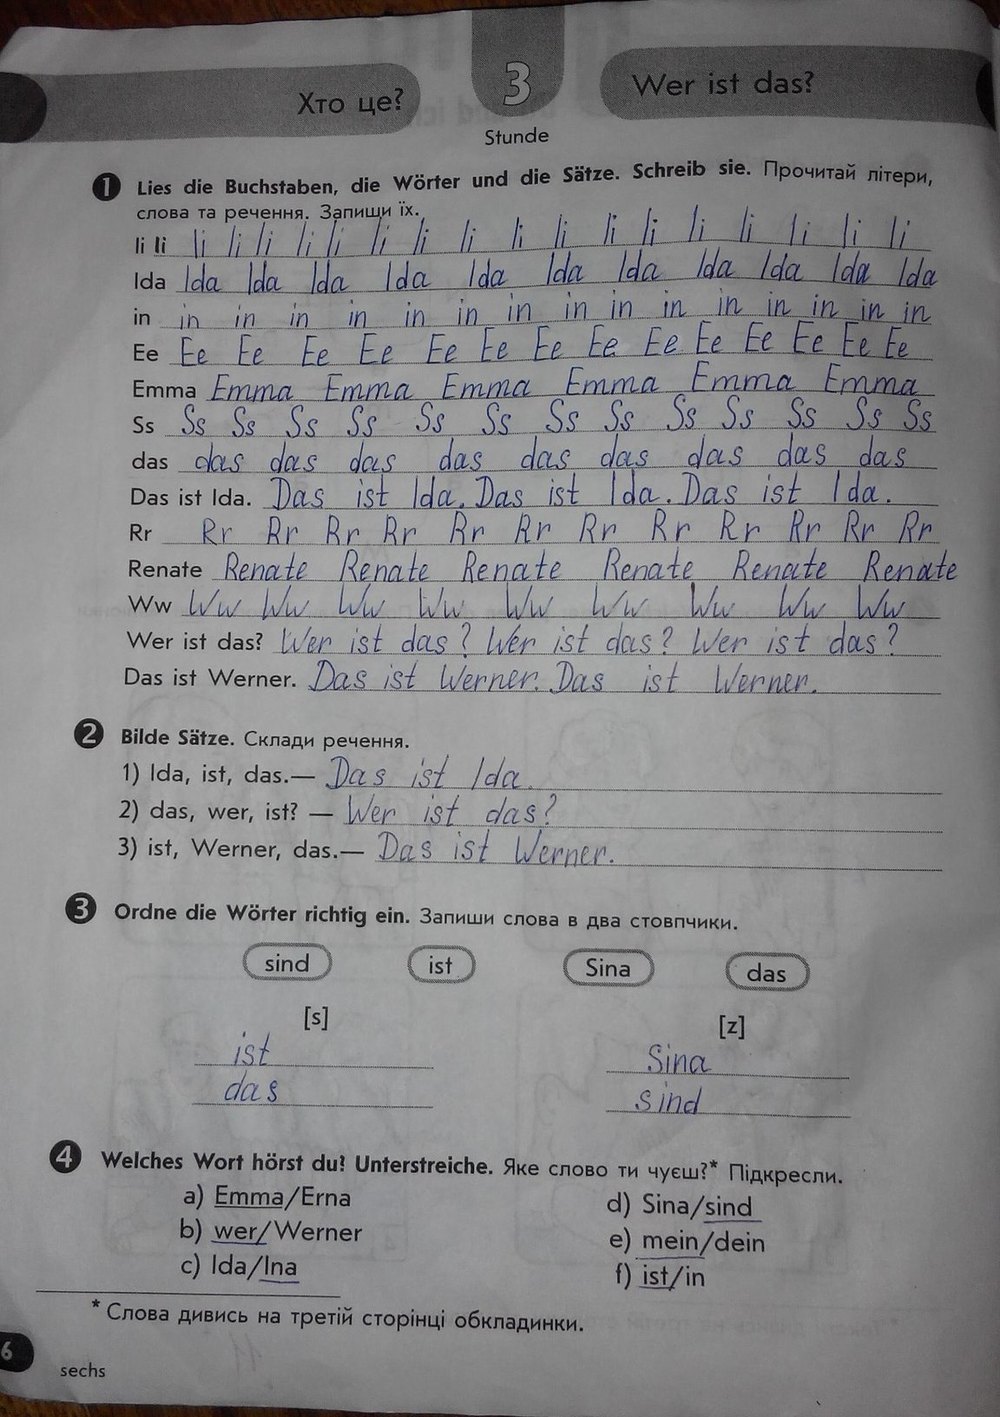 Хто це?
3
Stunde
Wer ist das?
1 Lies die Buchstaben, die Wörter und die Sätze. Schreib sie. Прочитай літери,
слова та речення. Запиши їх.
Ii Ii Ii Ii Ii Ii Ii Ii Ii Ii Ii Ii Ii Ii Ii Ii Ii Ii Ii
Ida Ida Ida Ida Ida Ida Ida Ida Ida Ida Ida Ida
in in in in in in in in in in in in in in in in
Ee Ee Ee Ee Ee Ee Ee Ee Ee Ee Ee Ee Ee Ee Ee
Emma Emma Emma Emma Emma Emma Emma
Ss Ss Ss Ss Ss Ss Ss Ss Ss Ss Ss Ss Ss Ss
das das das das das das das das das das
Das ist Ida. Das ist Ida. Das ist Ida. Das ist Ida.
Rr Rr Rr Rr Rr Rr Rr Rr Rr Rr Rr Rr Rr
Renate Renate Renate Renate Renate Renate Renate
Ww Ww Ww Ww Ww Ww Ww Ww Ww Ww
Wer ist das? Wer ist das? Wer ist das? Wer ist das?
Das ist Werner. Das ist Werner. Das ist Werner.
2 Bilde Sätze. Склади речення.
1) Ida, ist, das.— Das ist Ida.
2) das, wer, ist? — Wer ist das?
3) ist, Werner, das.— Das ist Werner.
3 Ordne die Wörter richtig ein. Запиши слова в два стовпчики.
sind ist Sina das
[s] [z]
ist Sina
das sind
4 Welches Wort hörst du? Unterstreiche. Яке слово ти чуєш?* Підкресли.
a) Emma/Erna d) Sina/sind
b) wer/Werner e) mein/dein
c) Ida/Ina f) ist/in
* Слова дивись на третій сторінці обкладинки.
6
sechs